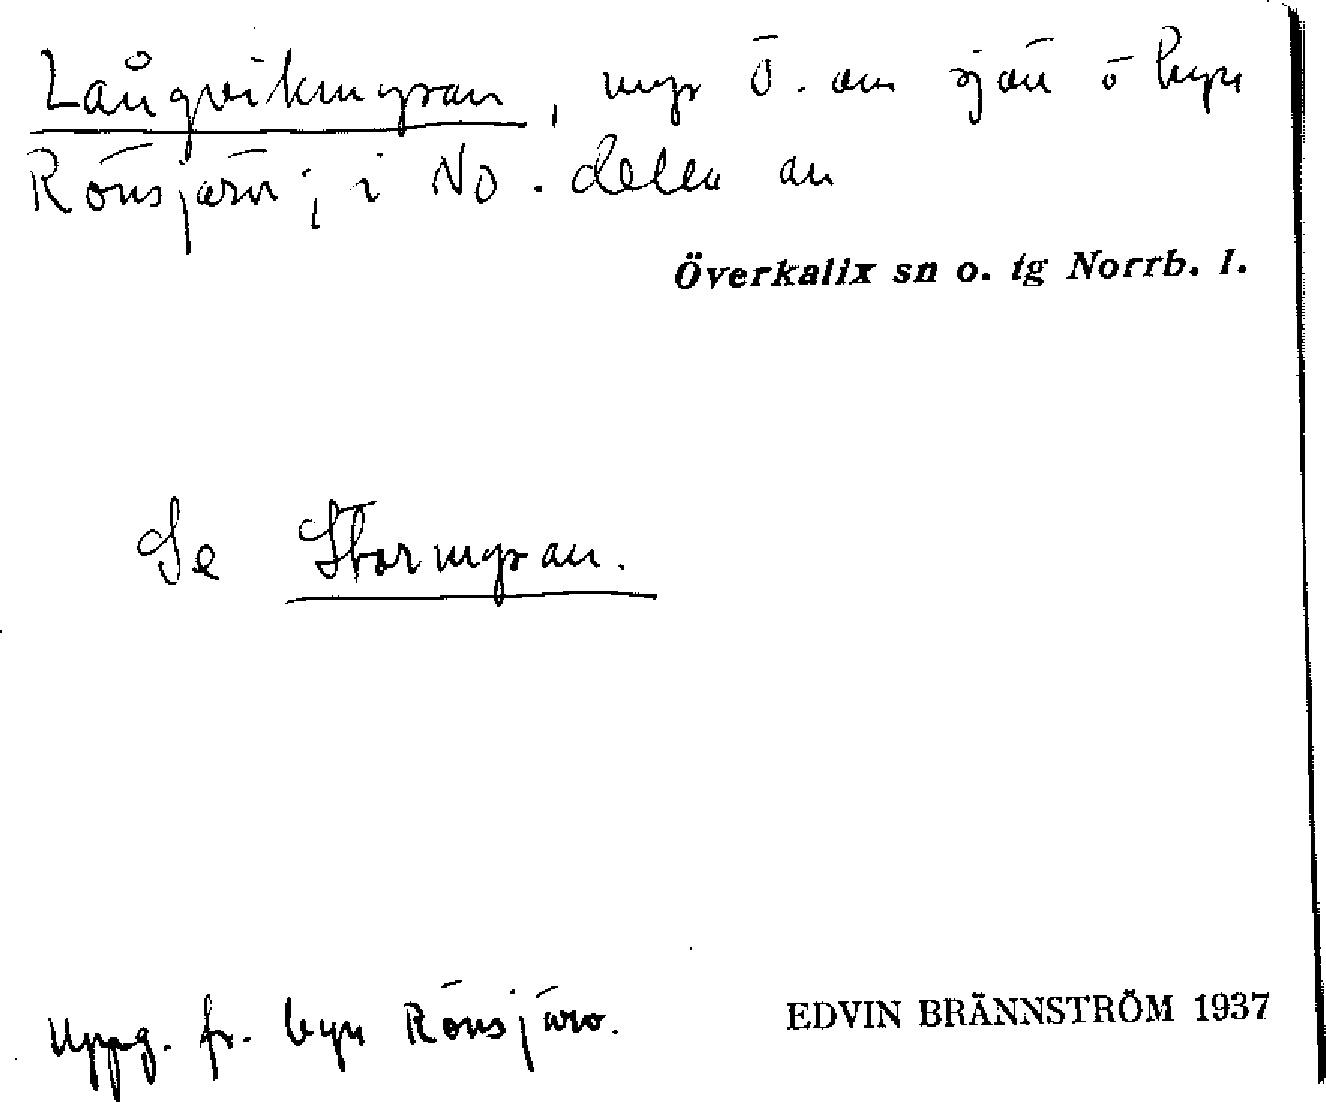 Långvikmyran, myr Ö. om sjön o byn
Rönsjärv; i NO. delen av
Överkalix sn o. tg Norrb. l.
Se Stormyran.
Uppg. fr. byn Rönsjärv.
EDVIN BRÄNNSTRÖM 1937